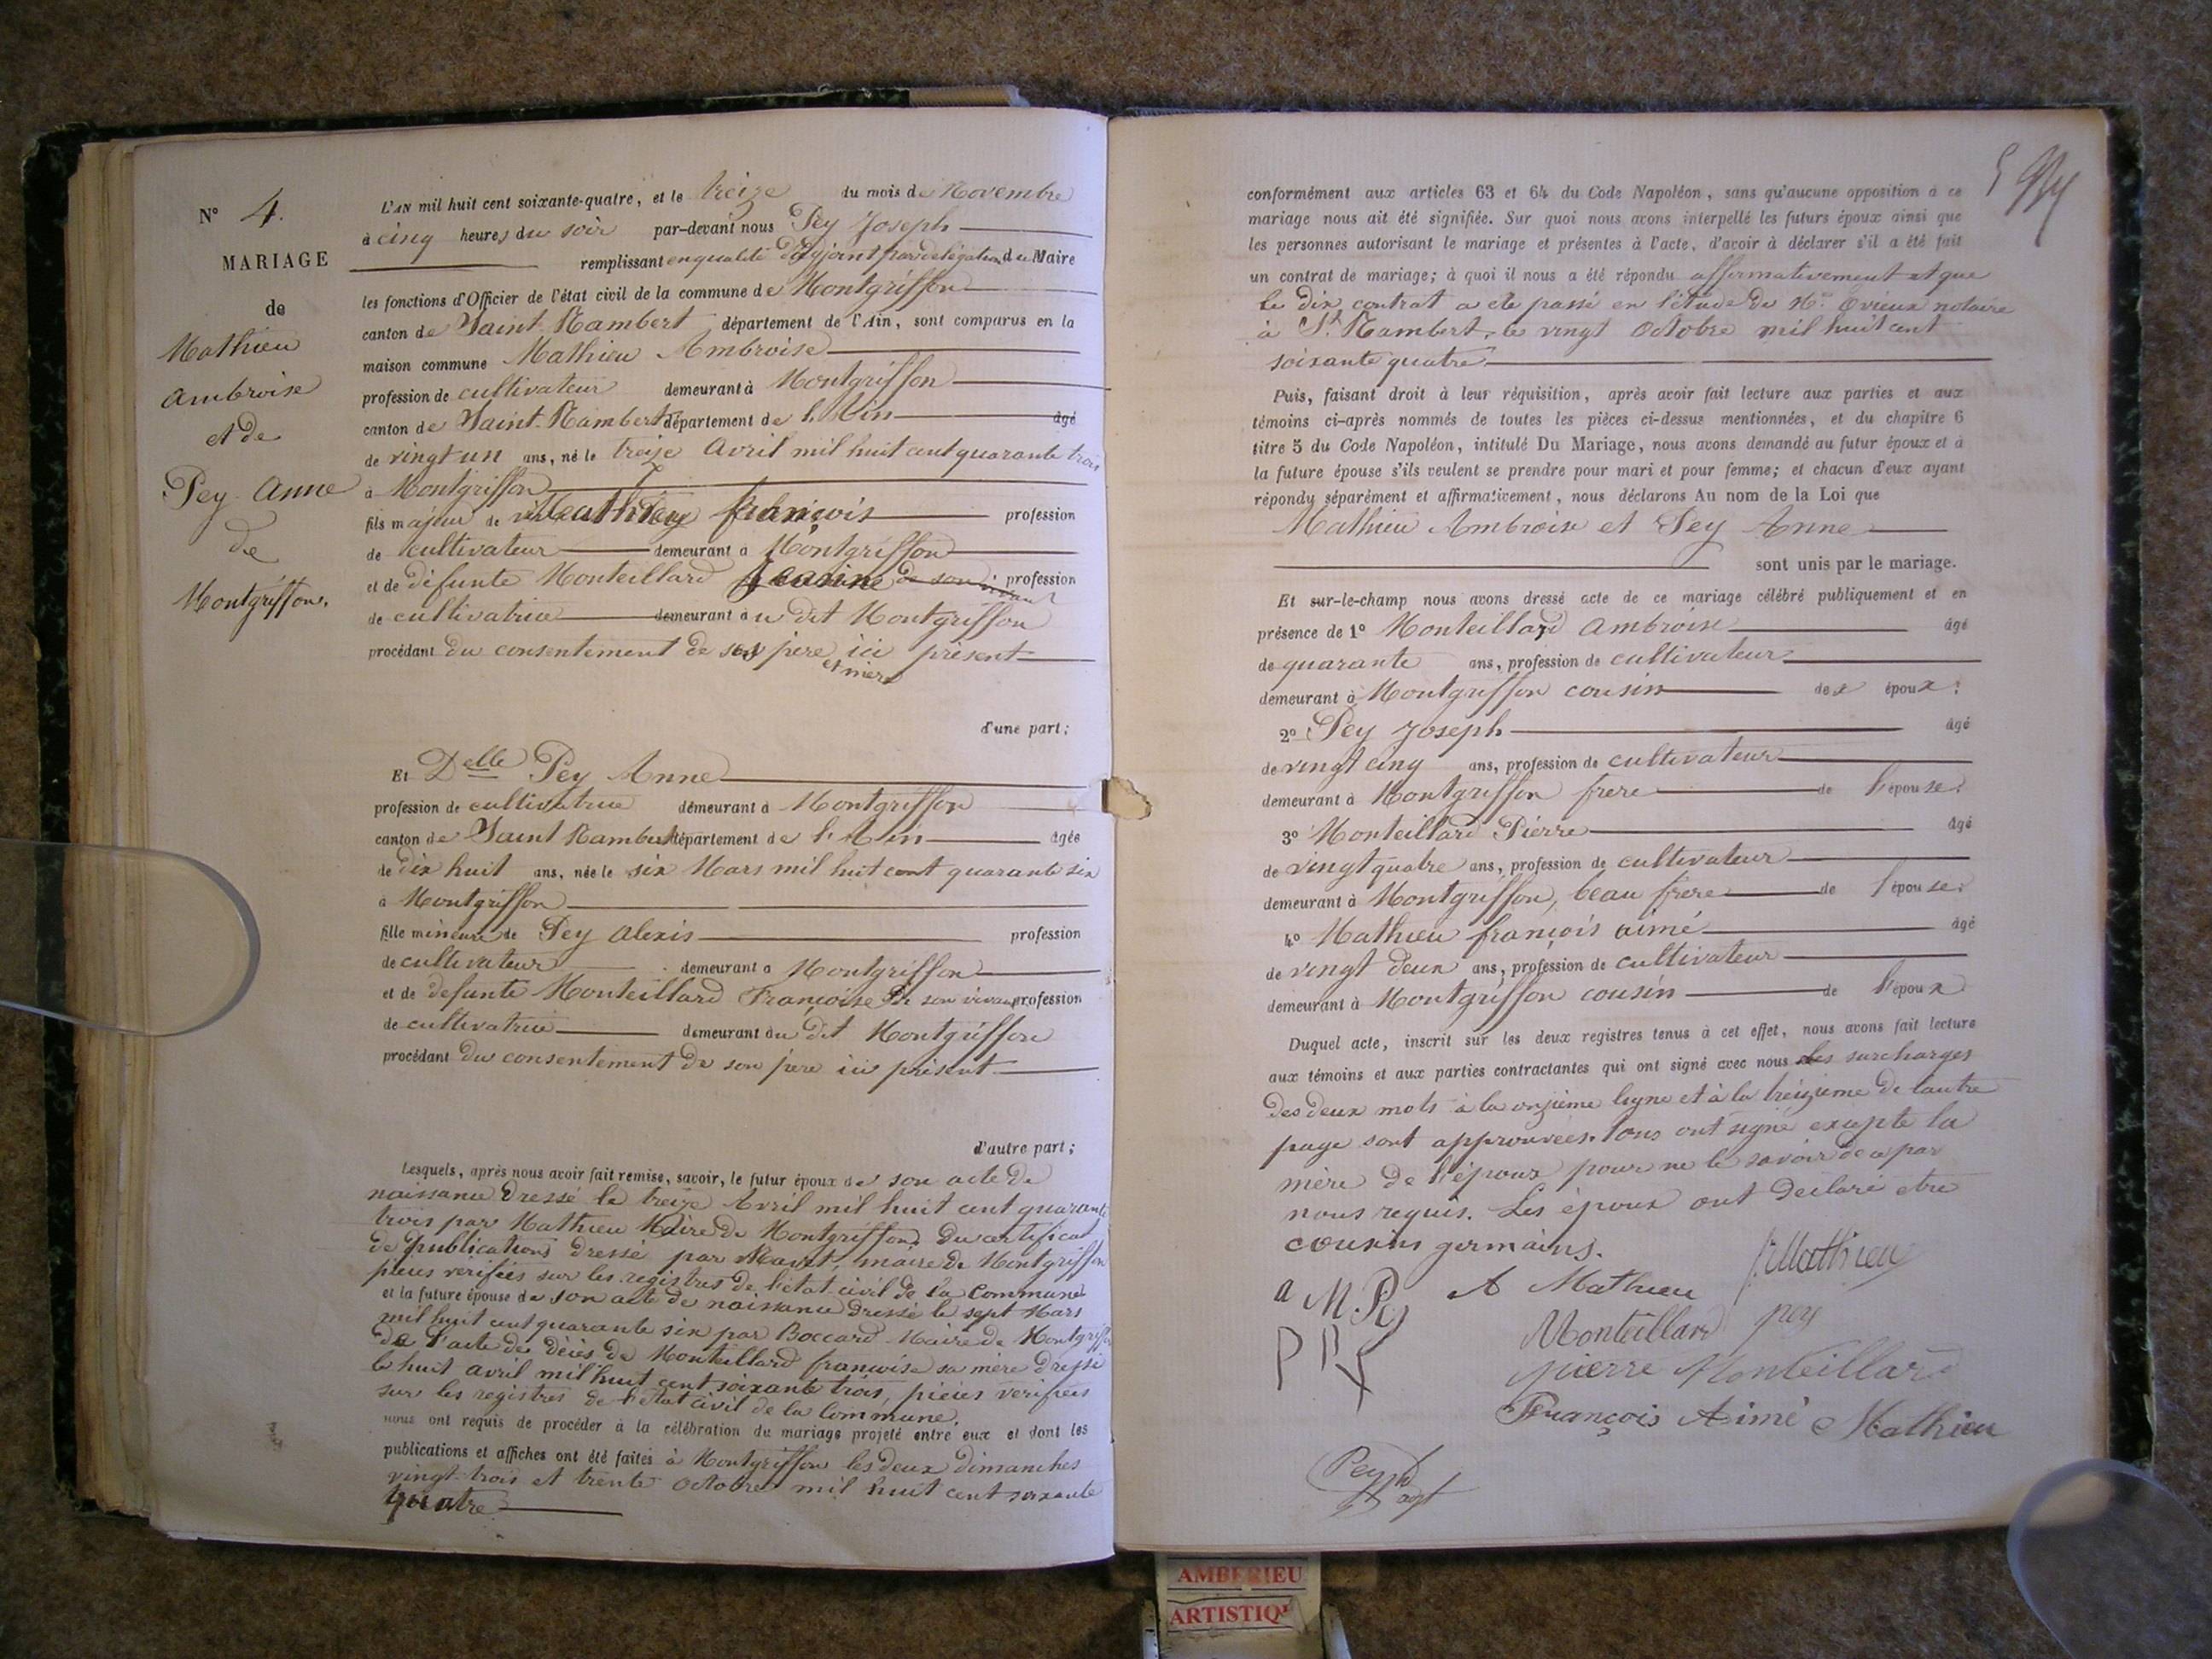 N° 4.
MARIAGE
de
Mathieu
Ambroise
et de
Pey Anne
de
Montgriffon.
L'AN mil huit cent soixante-quatre, et le treize du mois de Novembre
à cinq heures du soir par-devant nous Pey Joseph
remplissant en qualité d'adjoint par délégation du Maire
les fonctions d'Officier de l'état civil de la commune de Montgriffon
canton de Saint-Rambert département de l'Ain, sont comparus en la
maison commune Mathieu Ambroise
profession de cultivateur demeurant à Montgriffon
canton de Saint-Rambert département de l'Ain âgé
de vingt un ans, né le treize Avril mil huit cent quarante trois
à Montgriffon
fils majeur de françois profession
de cultivateur demeurant à Montgriffon
et de défunte Monteillard Jeanine de son vivant profession
de cultivatrice demeurant au dit Montgriffon
procédant du consentement de ses père ici présent
et mère
d'une part;
Et Delle Pey Anne
profession de cultivatrice demeurant à Montgriffon
canton de Saint Rambert département de l'Ain âgée
de dix huit ans, née le six Mars mil huit cent quarante six
à Montgriffon
fille mineure de Pey Alexis profession
de cultivateur demeurant à Montgriffon
et de defunte Monteillard Françoise de son vivant profession
de cultivatrice demeurant au dit Montgriffon
procédant du consentement de son père ici présent
d'autre part;
Lesquels, après nous avoir fait remise, savoir, le futur époux de son acte de
naissance dressé le treize Avril mil huit cent quarante
trois par Mathieu Maire de Montgriffon, du certificat
de publications dressé par maire de Montgriffon
pièces verifiées sur les registres de l'état civil de la Commune
et la future épouse de son acte de naissance dressé le sept Mars
mil huit cent quarante six par Boccard Maire de Montgriffon
de l'acte de décès de Monteillard françoise sa mère dressé
le huit avril mil huit cent soixante trois, pièces verifiées
sur les registres de l'état civil de la Commune.
nous ont requis de procéder à la célébration du mariage projeté entre eux et dont les
publications et affiches ont été faites à Montgriffon les deux dimanches
vingt-trois et trente octobre mil huit cent soixante
quatre
conformément aux articles 63 et 64 du Code Napoléon, sans qu'aucune opposition à ce
mariage nous ait été signifiée. Sur quoi nous avons interpellé les futurs époux ainsi que
les personnes autorisant le mariage et présentes à l'acte, d'avoir à déclarer s'il a été fait
un contrat de mariage; à quoi il nous a été répondu affirmativement et que
le dix contrat a été passé en l'étude de Me Ovrieux notaire
à St Rambert, le vingt Octobre mil huit cent
soixante quatre
Puis, faisant droit à leur réquisition, après avoir fait lecture aux parties et aux
témoins ci-après nommés de toutes les pièces ci-dessus mentionnées, et du chapitre 6
titre 5 du Code Napoléon, intitulé Du Mariage, nous avons demandé au futur époux et à
la future épouse s'ils veulent se prendre pour mari et pour femme; et chacun d'eux ayant
répondu séparément et affirmativement, nous déclarons Au nom de la Loi que
Mathieu Ambroise et Pey Anne
sont unis par le mariage.
Et sur-le-champ nous avons dressé acte de ce mariage célébré publiquement et en
présence de 1° Monteillard Ambroise âgé
de quarante ans, profession de cultivateur
demeurant à Montgriffon cousin des époux.
2° Pey Joseph âgé
de vingt cinq ans, profession de cultivateur
demeurant à Montgriffon frere de l'épouse.
3° Monteillard Pierre âgé
de vingt quatre ans, profession de cultivateur
demeurant à Montgriffon, beau frere de l'épouse.
4° Mathieu françois aimé âgé
de vingt deux ans, profession de cultivateur
demeurant à Montgriffon cousin de l'époux
Duquel acte, inscrit sur les deux registres tenus à cet effet, nous avons fait lecture
aux témoins et aux parties contractantes qui ont signé avec nous les surcharges
des deux mots à la onzième ligne et à la treizieme de l'autre
page sont approuvées. Tous ont signé excepte la
mère de l'époux pour ne le savoir de ce par
nous requis. Les époux ont déclaré etre
cousins germains.
a M. Pey A Mathieu f. Mathieu
Monteillard pey
pierre Monteillard
François Aimé Mathieu
Pey
AMBERIEU
ARTISTIQ